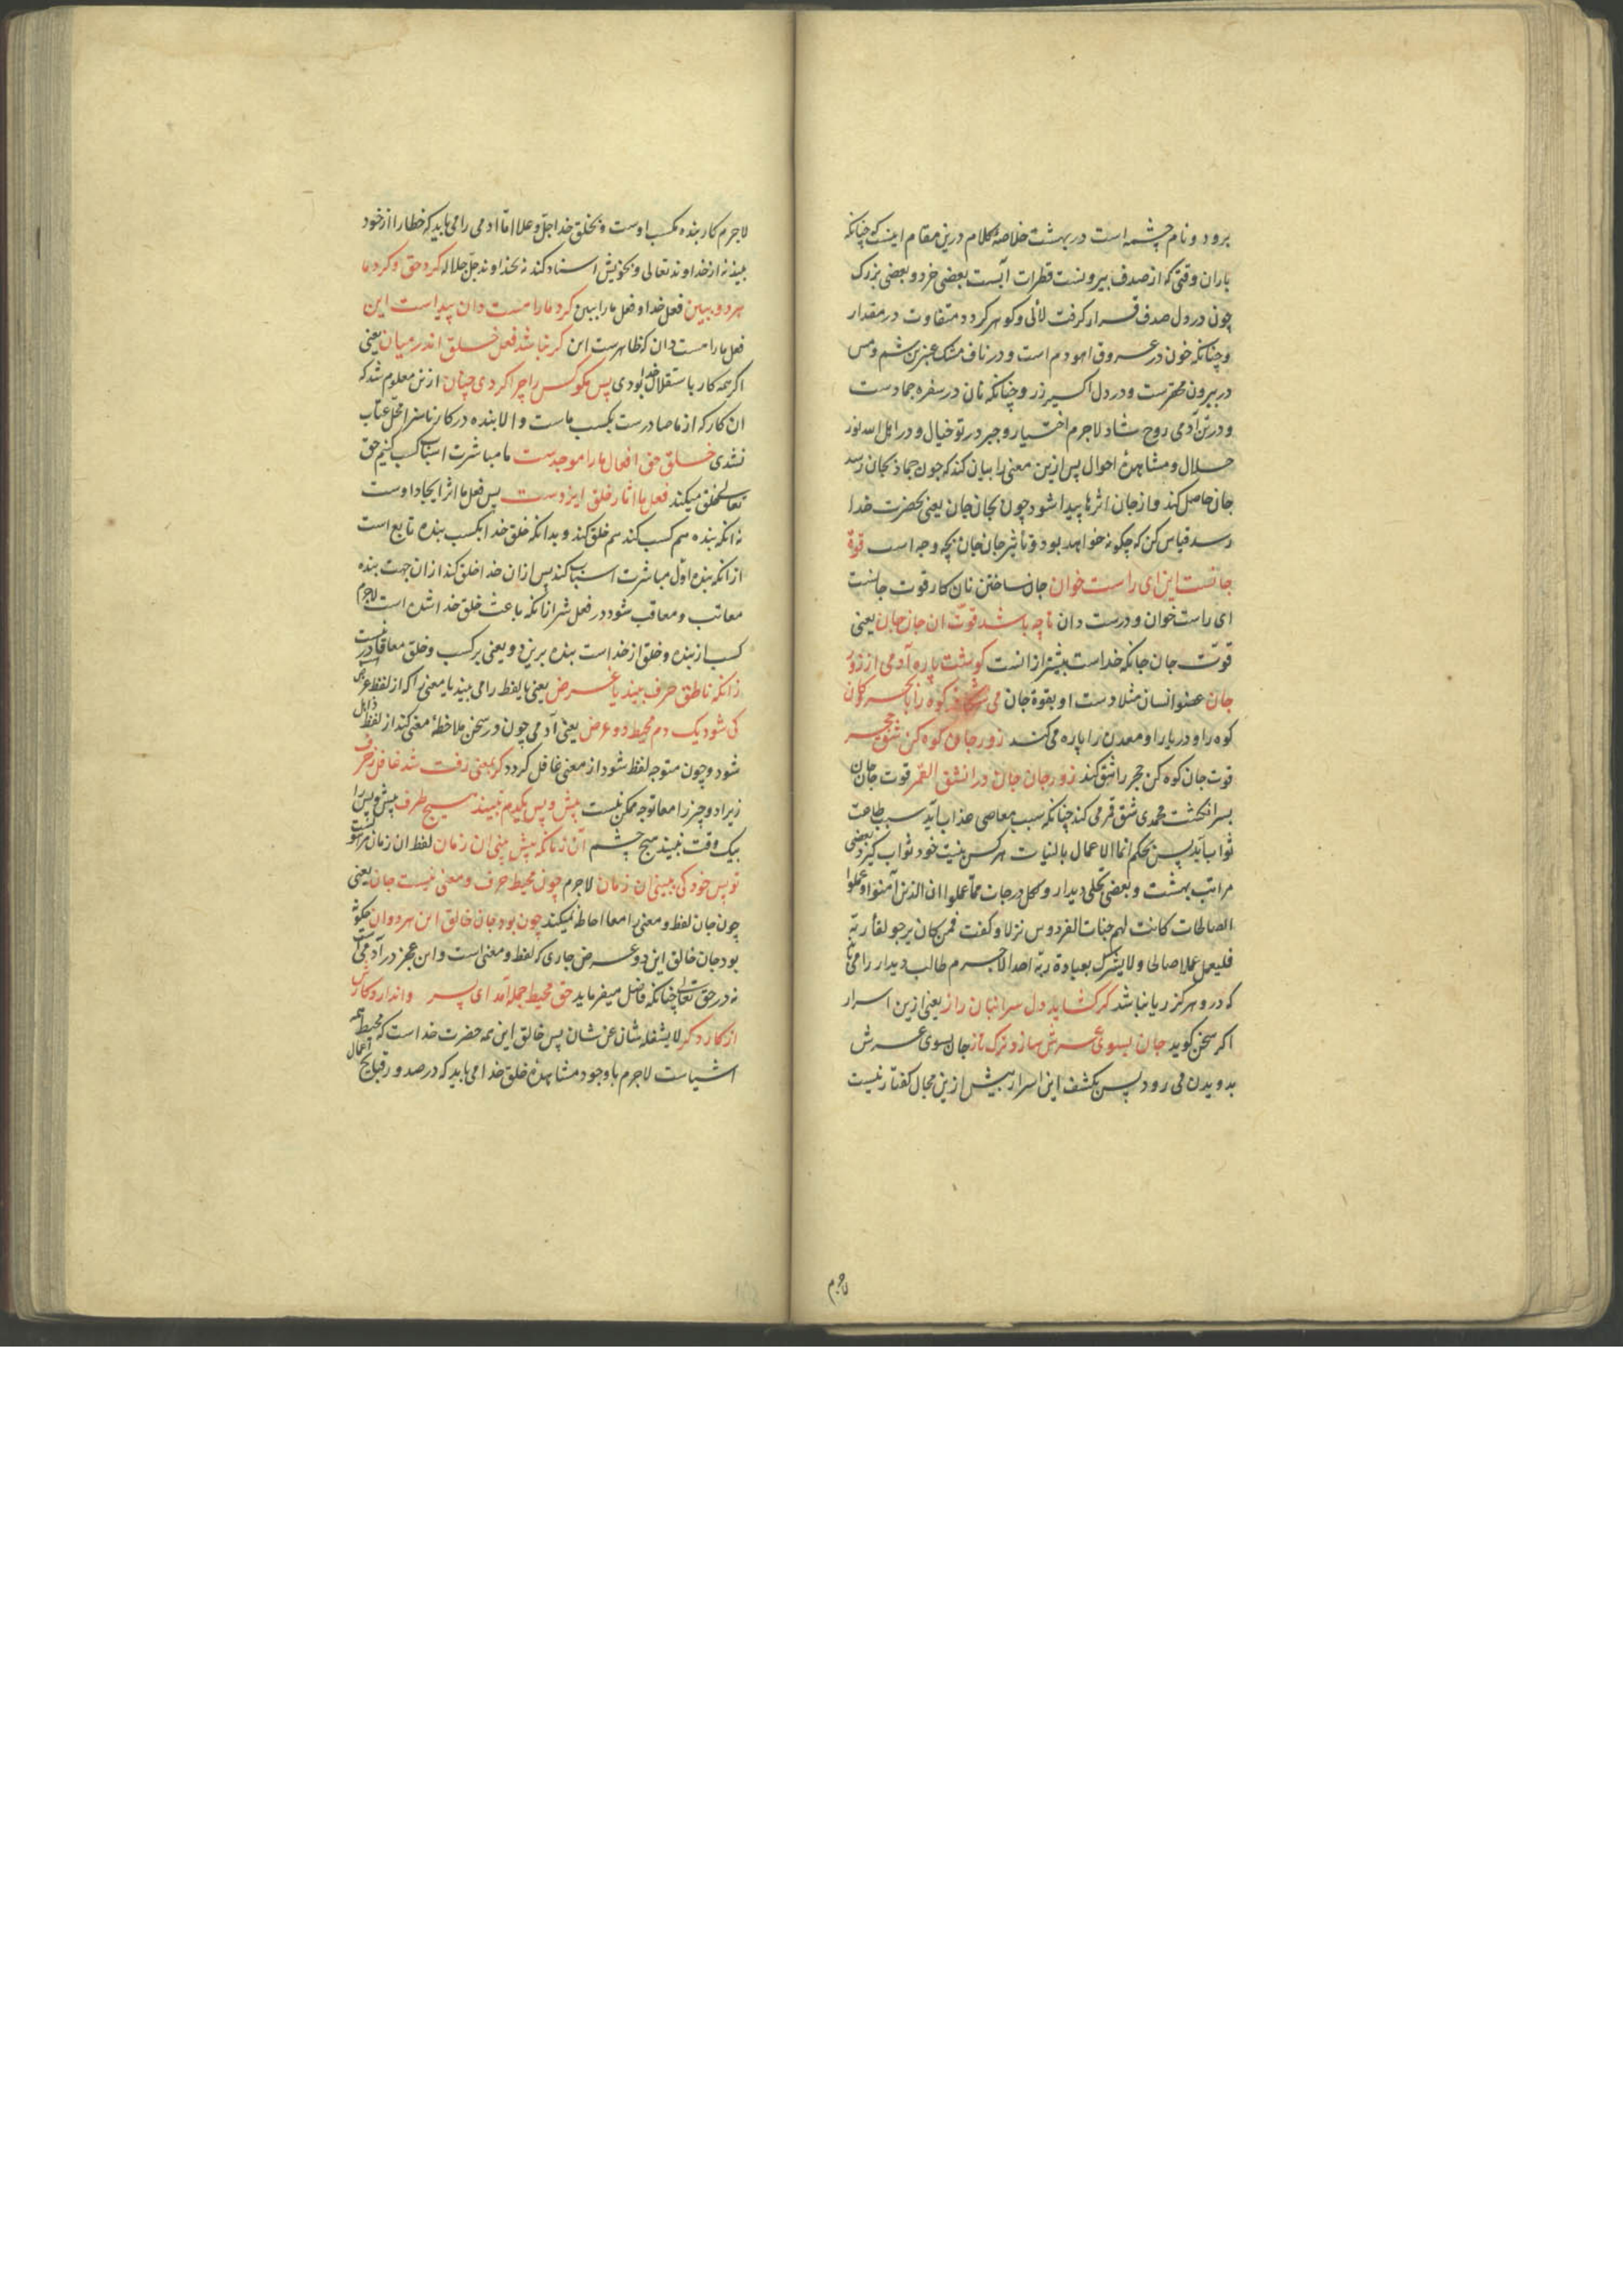 برود و نام چشمه است در بهشت خلاصهٔ کلام درین مقام اینست که چنانکه
باران وقتی که از صدف بیرونست قطرات آبست بعضی خرد و بعضی بزرک
چون در دل صدف قرار کرفت لآلی و کوهر کردد متفاوت در مقدار
و چنانکه خون در عروق اهو دم است و در ناف مشک عنبرین شم و مس
در بیرون محقرست و در دل اکسیر زر و چنانکه نان در سفره جمادست
و در تن آدمی روح شاد لاجرم اختیار و جبر در تو خیال و در اهل الله نور
جلال و مشاهدهٔ احوال پس ازین معنی را بیان کند که چون جماد بجان رسد
جان حاصل کند و از جان اثرها پیدا شود چون بجان جان یعنی بحضرت خدا
رسد قیاس کن که چکونه خواهد بود و تأثیر جان جان بچه وجه است قوهٔ
جانست این ای راست خوان جان ساختن نان کار قوت جانست
ای راست خوان و درست دان تا چه باشد قوت ان جان جان یعنی
قوت جان جانکه خداست بیشتر ازانست کوشت پاره آدمی از زور
جان عضو انسان مثلا دست او بقوة جان می شکافد کوه را با بحر و کان
کوه را و دریا را و معدن را پاره می کند زور جان کوه کن شق حجر
قوت جان کوه کن حجر را شق کند زور جان جان در انشق القمر قوت جان جان
بسر انکشت محمدی شق قمر می کند چنانکه سبب معاصی عذاب آید سبب طاعت
ثواب آید پس بحکم انما الاعمال بالنیات هر کس بنیت خود ثواب کیرد بعضی
مراتب بهشت و بعضی تجلی دیدار و لکل درجات مما عملوا ان الذین آمنوا و عملوا
الصالحات کانت لهم جنات الفردوس نزلا و کفت فمن کان یرجو لقاء ربه
فلیعمل عملا صالحا و لا یشرک بعبادة ربه احدا لاجرم طالب دیدار را می باید
که درو هرکز ریا نباشد کر کشاید دل سر انبان راز یعنی ازین اسرار
اکر سخن کوید جان بسوی عرش سازد ترک تاز جان بسوی عرش
بدویدن می رود پس بکشف این اسرار بیش ازین مجال کفتار نیست
لاجرم
لاجرم کار بنده بکسب اوست و بخلق خدا جل و علا اما آدمی را می باید که خطا را از خود
بیند نه از خداوند تعالی و بخویش اسناد کند نه بخداوند جل جلاله کرد حق و کرد ما
هر دو ببین فعل خدا و فعل ما را ببین کرد ما را هست دان پیداست این
فعل ما را هست دان که ظاهرست این کر نباشد فعل خلق اندر میان یعنی
اکر همه کار باستقلال خدا بودی پس مکو کس را چرا کردی چنان ازین معلوم شد که
ان کار که از ما صادرست بکسب ماست و الا بنده در کار ناسزا محل عتاب
نشدی خلق حق افعال ما را موجدست ما مباشرت اسباب کسب کنیم حق
تعالی خلق میکند فعل ما اثار خلق ایزدست پس فعل ما اثر ایجاد اوست
نه انکه بنده هم کسب کند هم خلق کند و بدانکه خلق خدا بکسب بنده تابع است
ازانکه بنده اول مباشرت اسباب کند پس ازان خدا خلق کند ازان جهت بنده
معاتب و معاقب شود در فعل شر ازانکه باعث خلق خدا شده است لاجرم
کسب از بنده و خلق از خداست بنده برین دو یعنی بر کسب و خلق معا قادر نیست
زانکه ناطق حرف بیند یا غرض یعنی یا لفظ را می بیند یا معنی را که از لفظ غرض است
کی شود یک دم محیط دو عرض یعنی آدمی چون در سخن ملاحظهٔ معنی کند از لفظ ذاهل
شود و چون متوجه لفظ شود از معنی غافل کردد کر بمعنی رفت شد غافل ز حرف
زیرا دو چیز را معا توجه ممکن نیست پیش و پس یکدم نبیند هیچ طرف پیش و پس را
بیک وقت نبیند هیچ چشم آن زمانکه پیش بینی ان زمان لفظ ان زمان مرهونست
تو پس خود کی ببینی ان زمان لاجرم چون محیط حرف و معنی نیست جان یعنی
چون جان لفظ و معنی را معا احاطه نمیکند چون بود جان خالق این هر دوان چکونه
بود جان خالق این دو عرض جاری که لفظ و معنی است و این عجز در آدمی است
نه در حق تعالی چنانکه فاضل میفرماید حق محیط جمله آمد ای پسر وا ندارد کارش
از کار دکر لا یشغله شان عن شان پس خالق این همه حضرت خداست که محیط همه
اشیاست لاجرم با وجود مشاهدهٔ خلق خدا می باید که در صدور قبایح اعمال